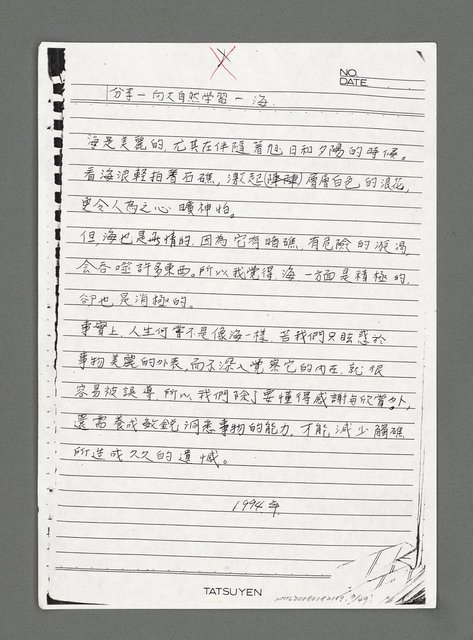 NO.
DATE
分享－向大自然学習－海
海是美麗的,尤其在伴隨著旭日和夕陽的時候。
看海浪輕拍著石礁,激起(陣陣)層層白色的浪花,
更令人為之心曠神怡。
但,海也是無情的,因為它有暗礁,有危險的漩渦,
会吞噬許多東西。所以我覺得,海,一方面是積極的,
卻也是消極的。
事實上,人生何嘗不是像海一樣,若我們只眩惑於
事物美麗的外表,而不深入覺察它的內在,就很
容易被誤導,所以,我們除了要懂得感謝与欣賞外,
還需養成敏銳洞悉事物的能力,才能減少觸礁
所造成久久的遺憾。
1994年
TATSUYEN